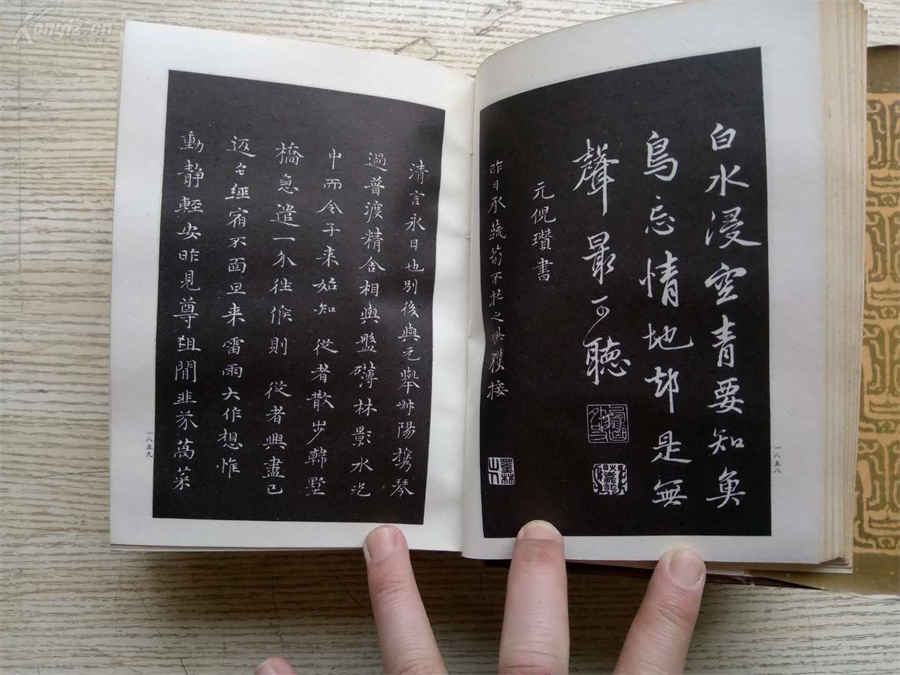 白水浸空青要知魚
鳥忘情地却是無
聲最可聽
元倪瓚書
昨日承蔬筍不托之供獲接
一八五八
清言永日也別後與元舉衡陽攜琴
過普渡精舍相與盤礴林影水光
中而令子來始知從者散步韓墅
橋急遣一介往候則從者興盡已
返台經宿不面旦來雷雨大作想惟
動靜輕安昨見尊俎間韭芥萵菜
一八五九